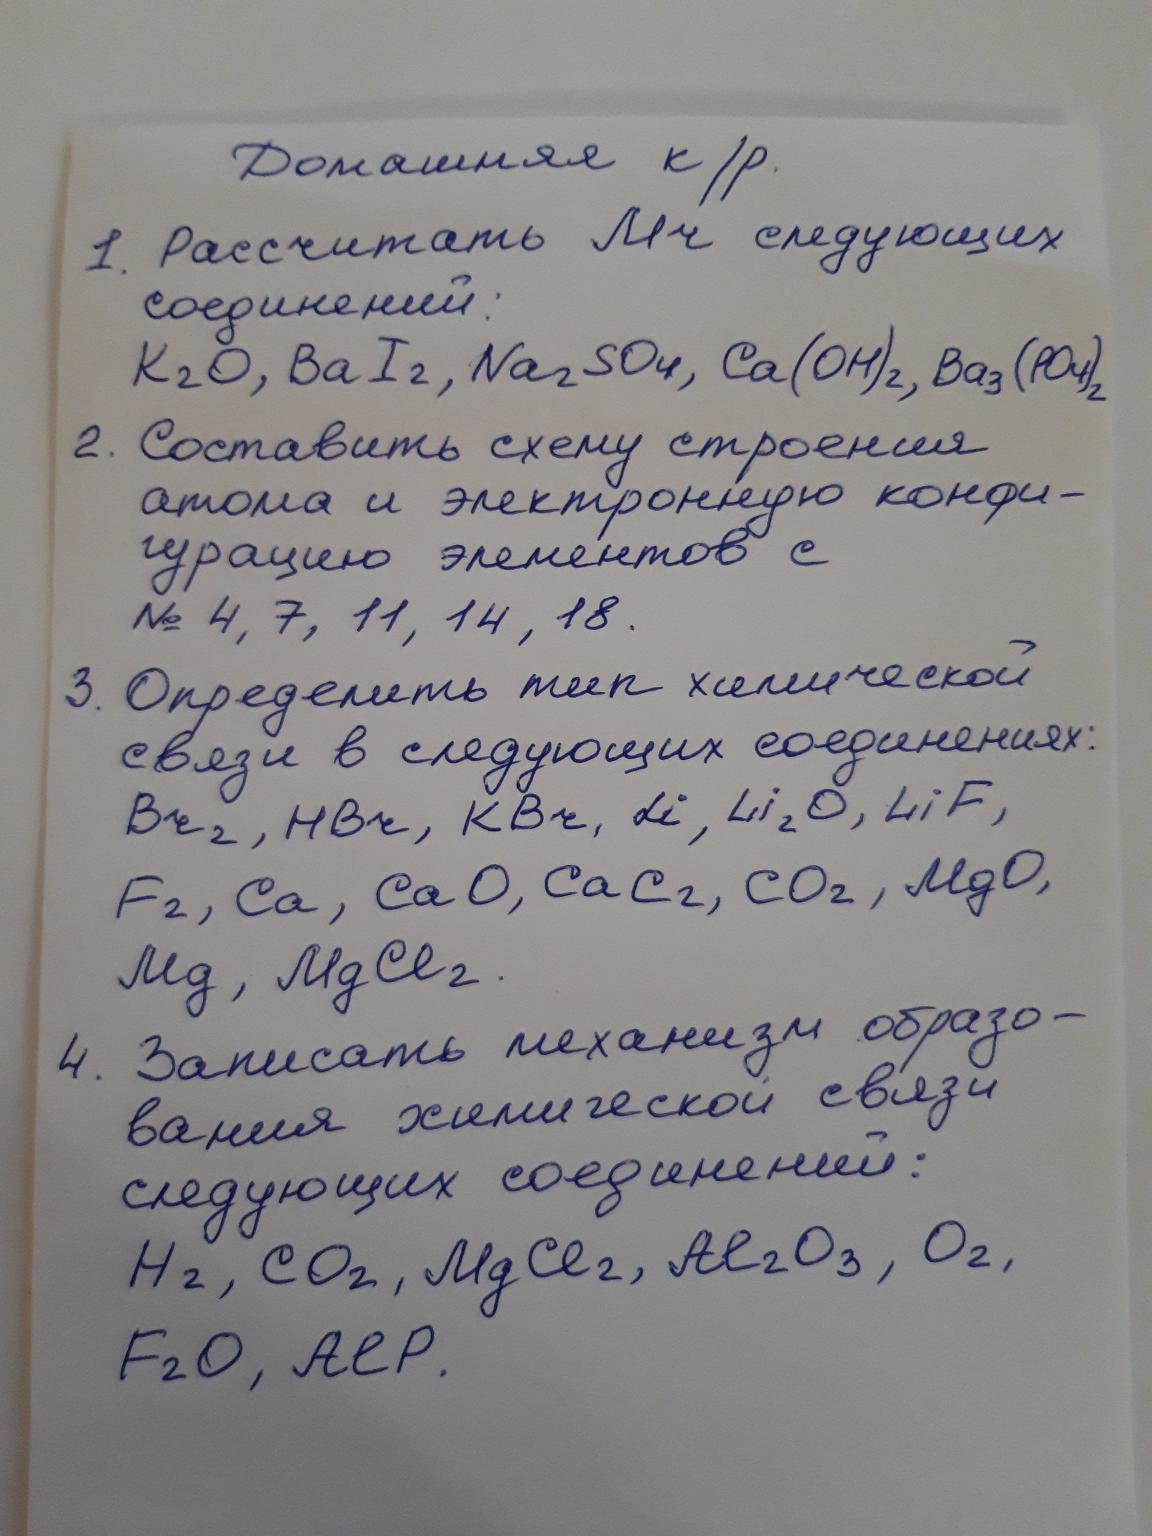 Домашняя к/р.
1. Рассчитать Mr следующих
соединений:
K₂O, BaI₂, Na₂SO₄, Ca(OH)₂, Ba₃(PO₄)₂
2. Составить схему строения
атома и электронную конфи-
гурацию элементов с
№ 4, 7, 11, 14, 18.
3. Определить тип химической
связи в следующих соединениях:
Br₂, HBr, KBr, Li, Li₂O, LiF,
F₂, Ca, CaO, CaC₂, CO₂, MgO,
Mg, MgCl₂.
4. Записать механизм образо-
вания химической связи
следующих соединений:
H₂, CO₂, MgCl₂, Al₂O₃, O₂,
F₂O, AlP.